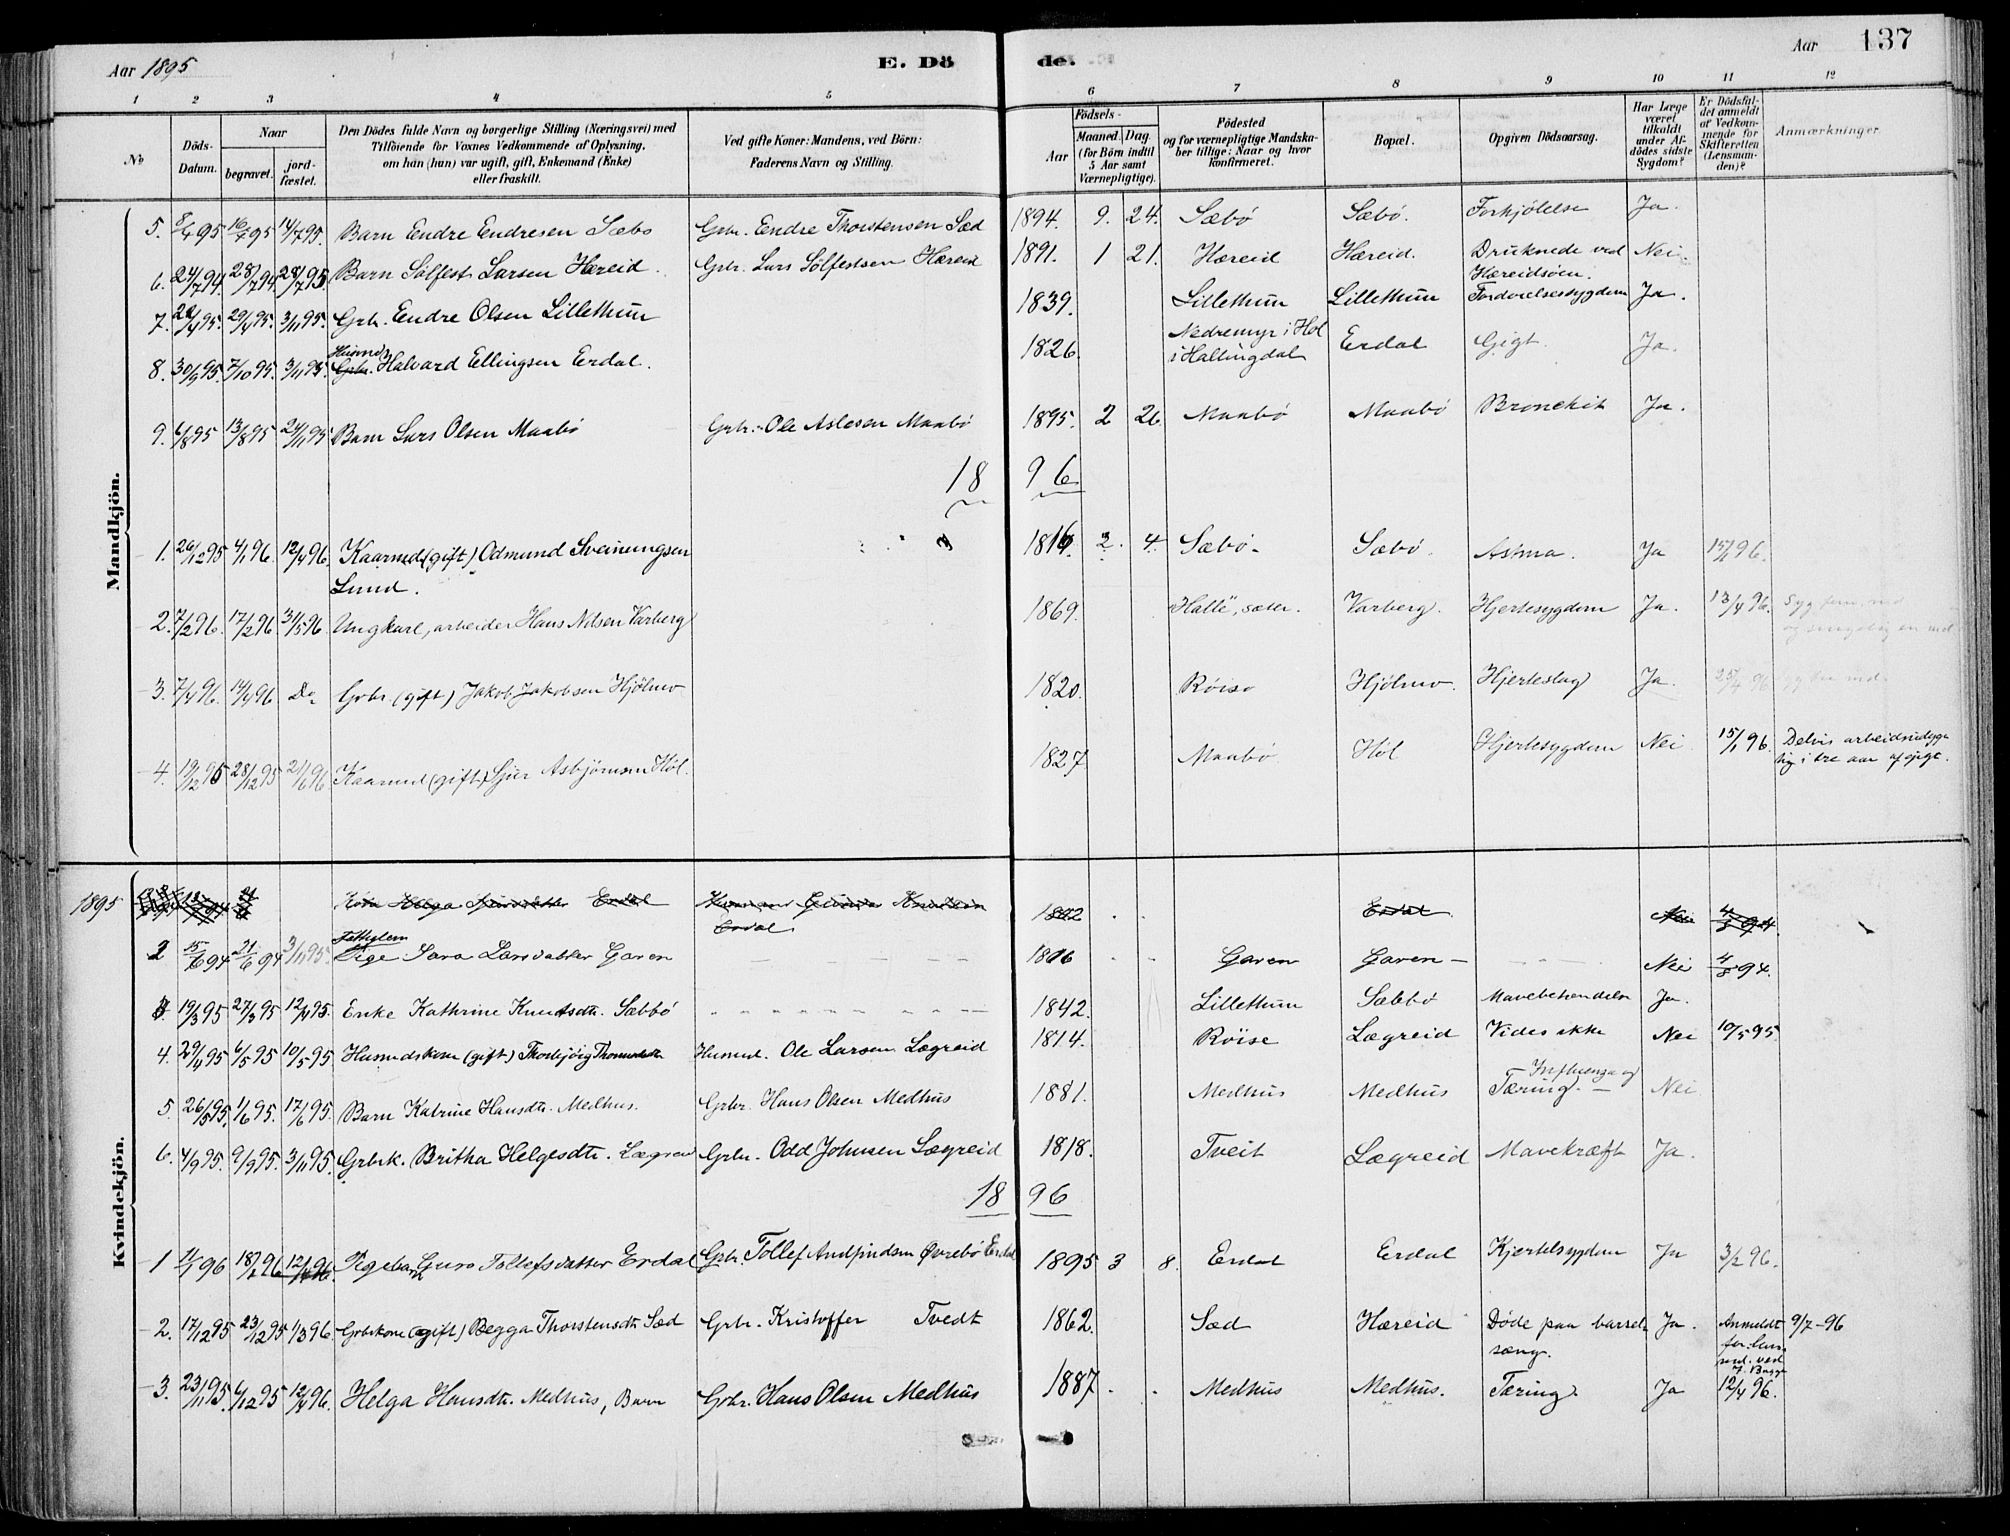 Aar 1895 E. Dö de. Aar 137
1 2 3 4 5 6 7 8 9 10 11 12
№
Döds-Datum.
Naar
begravet.
jord-fæstet.
Den Dödes fulde Navn og borgerlige Stilling (Næringsvei) med
Tilföiende for Voxnes Vedkommende af Oplysning,
om han (hun) var ugift, gift, Enkemand (Enke)
eller fraskilt.
Ved gifte Koner: Mandens, ved Börn:
Faderens Navn og Stilling.
Födsels-
Aar
Maaned. Dag.
(for Börn indtil
5 Aar samt
Værnepligtige).
Födested
og for værnepligtige Mandska-
ber tillige: Naar og hvor
konfirmeret.
Bopæl.
Opgiven Dödsaarsag.
Har Læge
været
tilkaldt
under Af-
dödes sidste
Sygdom?
Er Dödsfal-
det anmeldt
af Vedkom-
mende for
Skifteretten
(Lensman-
den)?
Anmærkninger.
Mandkjön.
5. 8/7 95 16/7 95 14/7 95. Barn Endre Endresen Sæbø Grbr. Endre Thorstensen Sæd 1894. 9. 24. Sæbø Sæbø. Forkjølelse Ja.
6. 24/7 94. 28/7 94. 28/7 95. Barn Sølfest Larsen Hæreid. Grbr. Lars Sølfestsen Hæreid 1891. 1 21. Hæreid Hæreid. Druknede ved Nei.
Hæreidsøen.
7. 22/4 95. 29/4 95. 3/11 95. Grbr. Endre Olsen Lillethun 1839. Lillethun Lillethun Fordøielsessygdom Ja.
8. 30/9 95. 7/10 95. 3/11 95. Husmd. Grbr. Halvard Ellingsen Erdal. 1826. Nedremyr i Hol
i Hallingdal Erdal Gigt. Ja.
9. 6/8 95 13/8 95 24/11 95 Barn Lars Olsen Maabø Grbr. Ole Aslesen Maabø 1895. 2 26. Maabø Maabø Bronckit Ja.
18 96
1. 26/12 95 4/1 96. 12/4 96. Kaarmd (gift) Odmund Sveinungsen 1816. 2. 4. Sæbø. Sæbø. Astma. Ja 15/1 96.
Lund.
2. 7/2 96. 17/2 96. 31/5 96. Ungkarl, arbeider Hans Nilsen Varberg 1869. Halle, sæter. Varberg. Hjertesygdom Ja. 13/4 96.
3. 7/4 96. 14/4 96 Do. Grbr. (gift) Jakob Jakobsen Hjølmo 1820. Røiso Hjølmo. Hjerteslag Ja. 25/4 96
4. 19/12 95 28/12 95 21/6 96 Kaarmd (gift) Sjur Asbjørnsen Høl. 1827 Maabø Høl Hjertesygdom Nei 15/1 96. Delvis arbeidsudyg-
tig i tre aar af gigt.
Kvindekjön.
1895 Kone Helga Erdal 1802 Erdal Nei 4/8 94.
Erdal
Fattiglem
2 15/6 94 21/6 94 3/11 95. Pige Sara Larsdatter Garen 1816 Garen Garen Nei 4/8 94.
3. 19/3 95 27/3 95 12/4 95. Enke Kathrine Knutsdtr. Sæbbø 1842. Lillethun Sæbbø Mavebetændelse Ja.
4. 29/4 95 6/5 95 10/5 95 Husmdskone (gift) Thorbjørg Thomasdtr. Husmd. Ole Larsen Lægreid 1814. Røise Lægreid Vides ikke Nei 10/5 95.
5. 26/5 95. 1/6 95. 17/6 95. Barn Katrine Hansdtr. Medhus. Grbr. Hans Olsen Medhus 1881. Medhus Medhus Influenza og
Tæring. Nei
6. 4/9 95. 9/9 95. 3/11 95. Grbrk. Britha Helgesdtr. Lægreid Grbr. Odd Johnsen Lægreid 1818. Tveit Lægreid Mavekræft Ja.
18 96
1 11/1 96 18/1 96 12/4 96. Pigebarn Guro Tollefsdatter Erdal Grbr. Tollef Andfindsen Øvrebø Erdal 1895 3 8. Erdal Erdal Kjertelsygdom Ja 3/2 96.
2. 17/12 95 23/12 95 1/3 96. Grbrkone (gift) Begga Thorstensdtr. Sæd Grbr. Kristoffer Tvedt 1862. Sæd Hæreid Døde paa barsel- Ja. Anmeldt 9/7-96
sæng. for Lens-
md. ved
3. 23/11 95. 6/12 95 12/4 96. Helga Hansdtr. Medhus, Barn Grbr. Hans Olsen Medhus 1887. Medhus Medhus. Tæring. Ja 12/4 96.